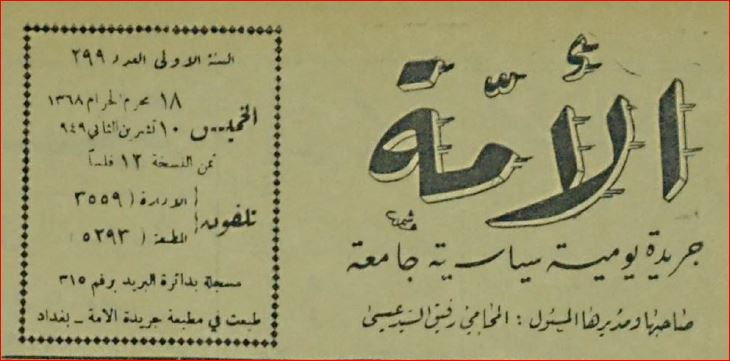 الأمّة
جريدة يومية سياسية جامعة
صاحبها ومديرها المسئول : المحامي رفيق السيد عيسى
السنة الاولى العدد ٢٩٩
الخميس
١٨ محرم الحرام ١٣٦٨
١٠ تشرين الثاني ٩٤٩
ثمن النسخة ١٢ فلساً
تلفون
الادارة ( ٣٥٥٩
المطبعة ( ٥٢٩٣
مسجلة بدائرة البريد برقم ٣١٥
طبعت في مطبعة جريدة الامة - بغداد